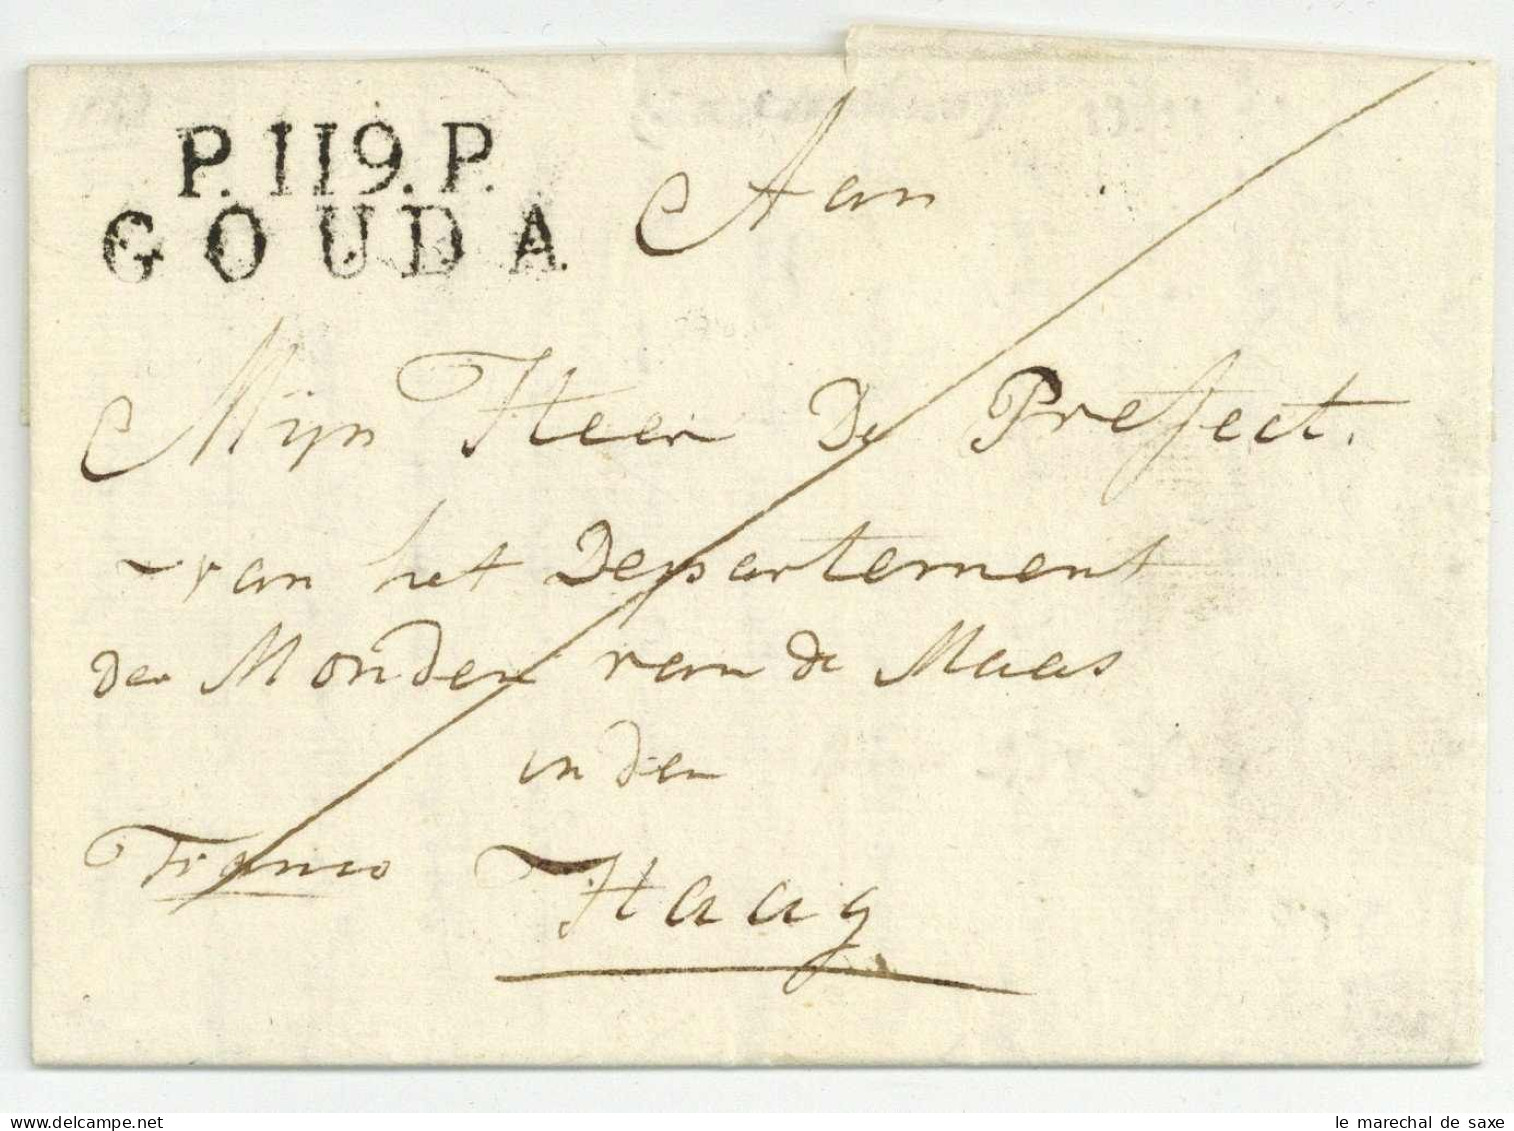 P.119.P.
GOUDA.
Aan
Mijn Heer De Prefect.
van het Departement
der Monden van de Maas
in den
Haag
Franco
le marechal de saxe